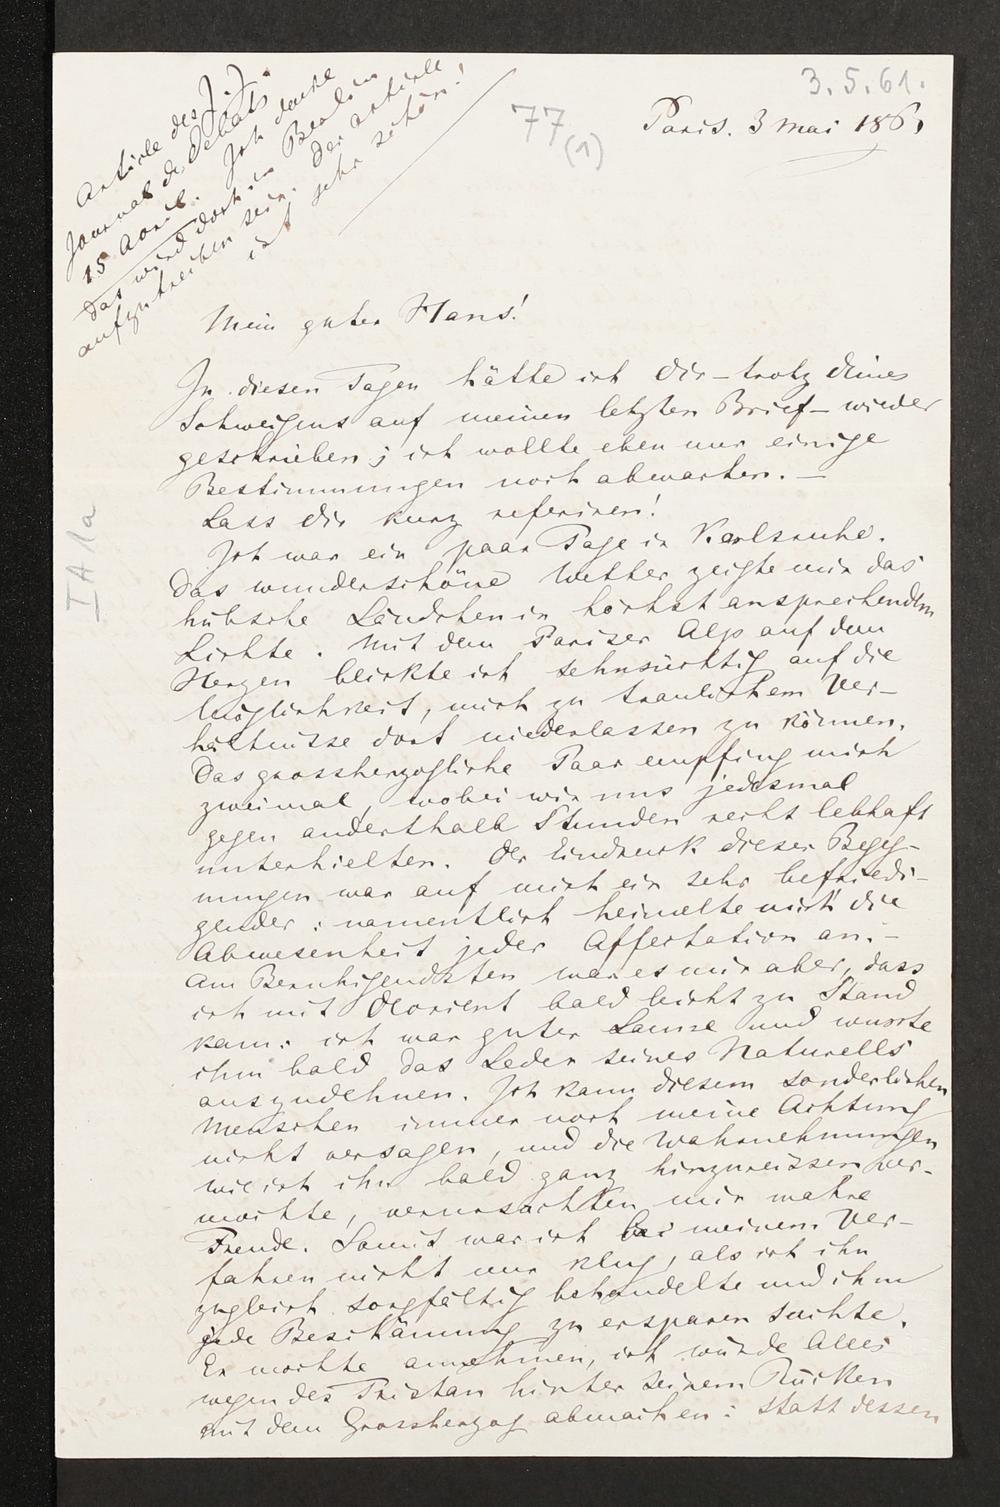 3.5.61.
77
(1)
Paris. 3 Mai 1861
Artikle des J. J.
Journal des Debats
15 April. Ich denke
das wird dort in Berlin
aufzutreiben sein. Der Artikle
ist sehr schön!
I A 1a
Mein guter Hans!
In diesen Tagen hätte ich Dir – trotz Deines
Schweigens auf meinen letzten Brief – wieder
geschrieben; ich wollte eben nur einige
Bestimmungen noch abwarten. –
Lass Dir kurz referiren!
Ich war ein paar Tage in Karlsruhe.
Das wunderschöne Wetter zeigte mir das
hübsche Ländchen in höchst ansprechendem
Lichte. Mit dem Pariser Alp auf dem
Herzen blickte ich sehnsüchtig auf die
Möglichkeit, mich zu traulichem Ver-
hältnisse dort niederlassen zu können.
Das grossherzogliche Paar empfing mich
zweimal, wobei wir uns jedesmal
gegen anderthalb Stunden recht lebhaft
unterhielten. Der Eindruck dieser Begeg-
nungen war auf mich ein sehr befriedi-
gender: namentlich heimelte mich die
Abwesenheit jeder Affectation an. –
Am Beruhigendsten war es mir aber, dass
ich mit Devrient bald leicht zu Stand
kam: ich war guter Laune und wusste
ihm bald das Leder seines Naturells
auszudehnen. Ich kann diesem sonderlichen
Menschen immer noch meine Achtung
nicht versagen, und die Wahrnehmungen
wie ich ihn bald ganz hinzureissen ver-
mochte, verursachten mir wahre
Freude. Somit war ich bei meinem Ver-
fahren nicht nur klug, als ich ihn
zugleich sorgfältig behandelte und ihm
jede Beschämung zu ersparen suchte.
Er mochte annehmen, ich würde Alles
wegen des Tristan hinter seinem Rücken
mit dem Grossherzog abmachen: statt dessen